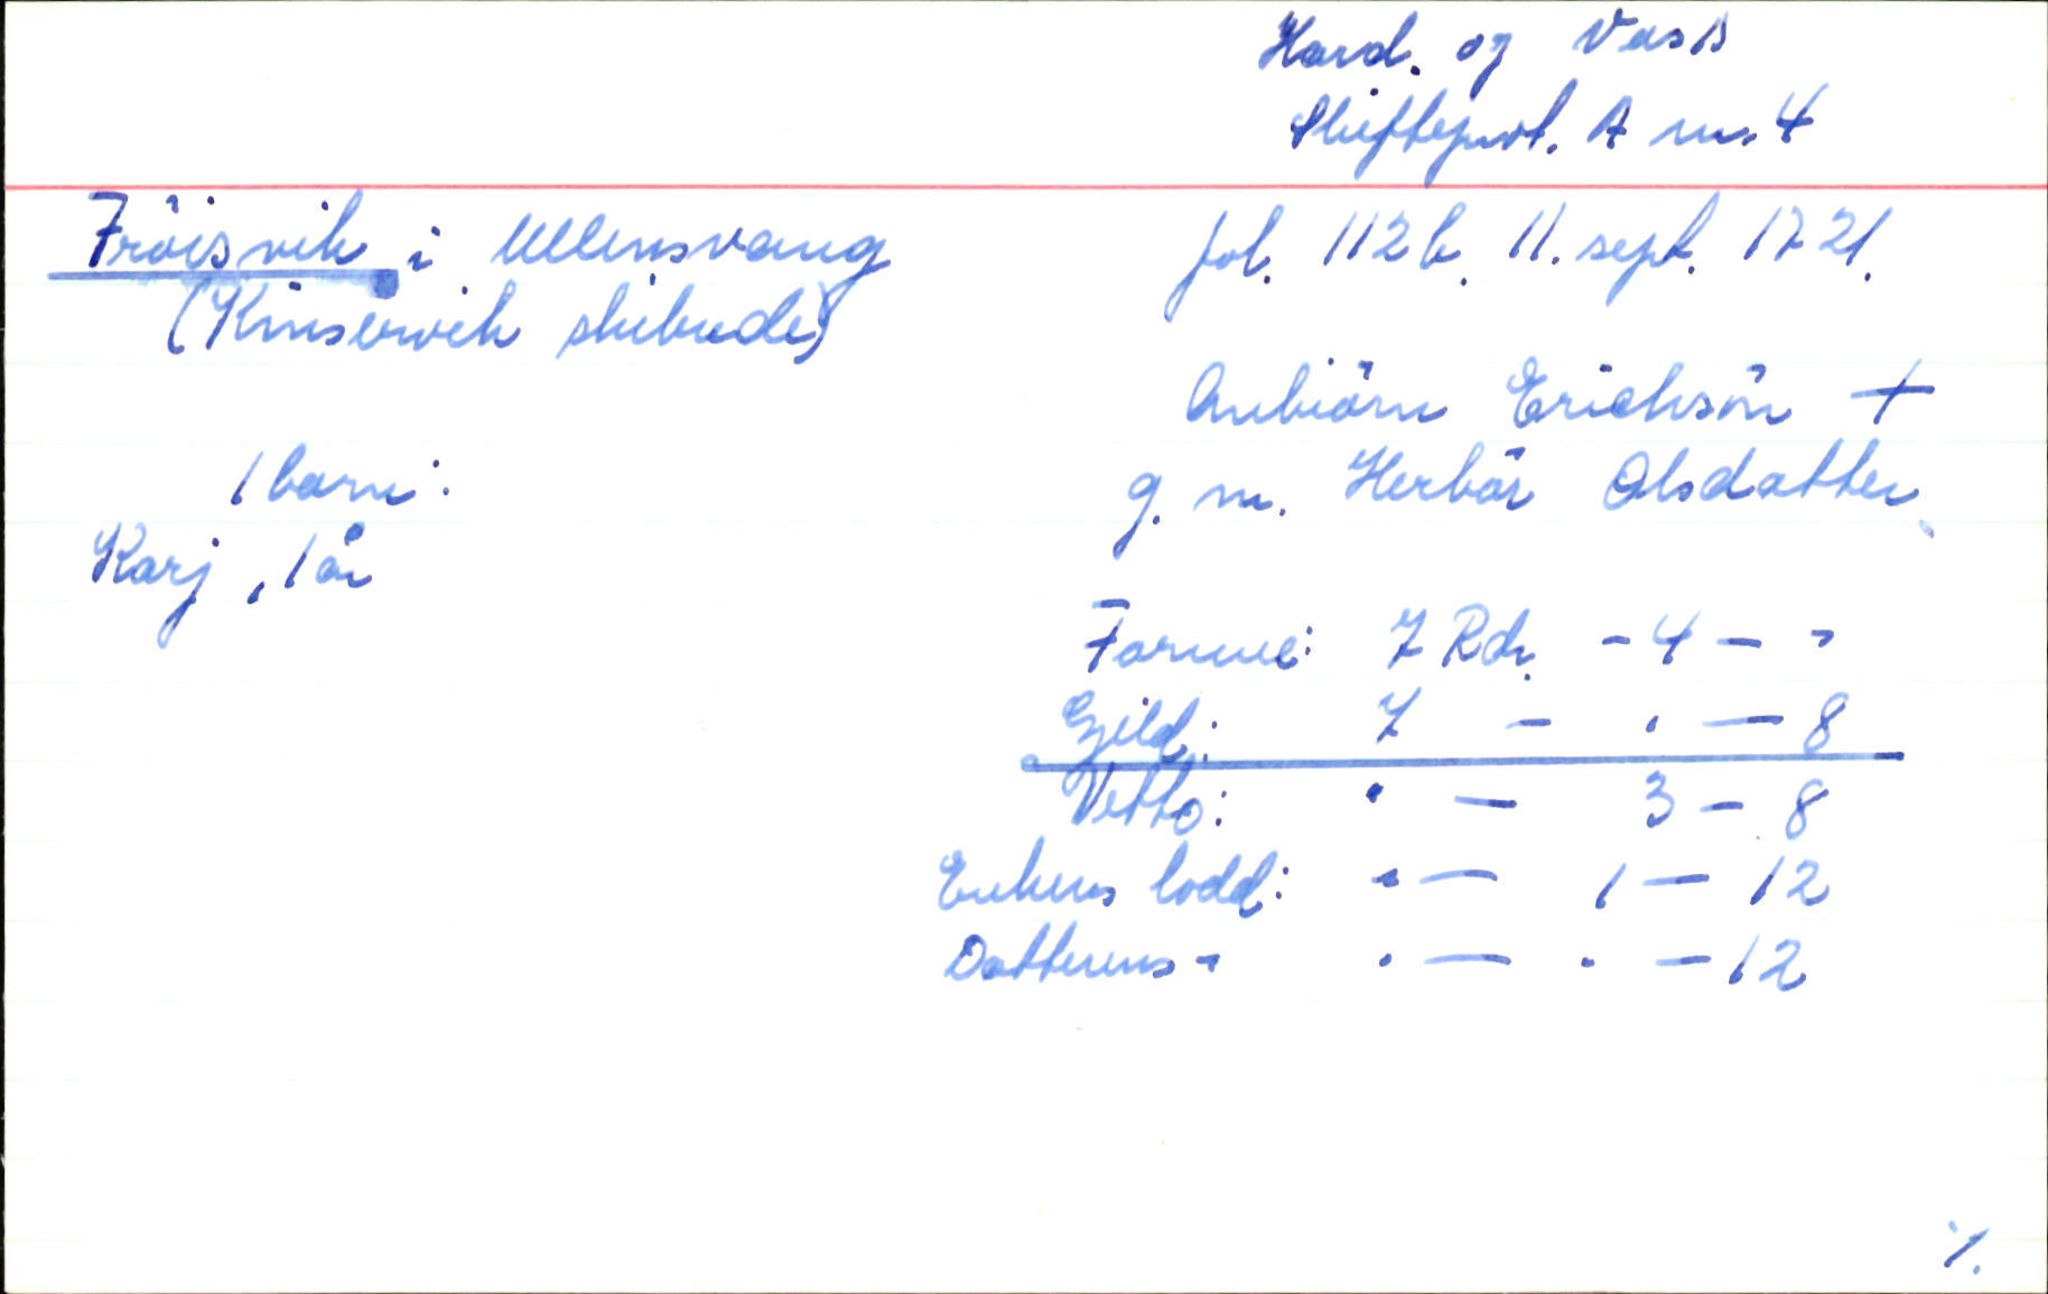 Hard. og Voss
Skifteprot. A nr. 4
Fröisvik i Ullensvang
fol. 112b. 11. sept. 1721.
(Kinservik skibrede)
Anbiörn Erichsön +
g. m. Herbör Olsdatter
1 barn:
Karj, 1 år
Formue: 7 Rdr. - 4 - "
Gjeld: 7 - . - 8
Netto: . - 3 - 8
Enkens lodd: . - 1 - 12
Datterens " . - . - 12
./.